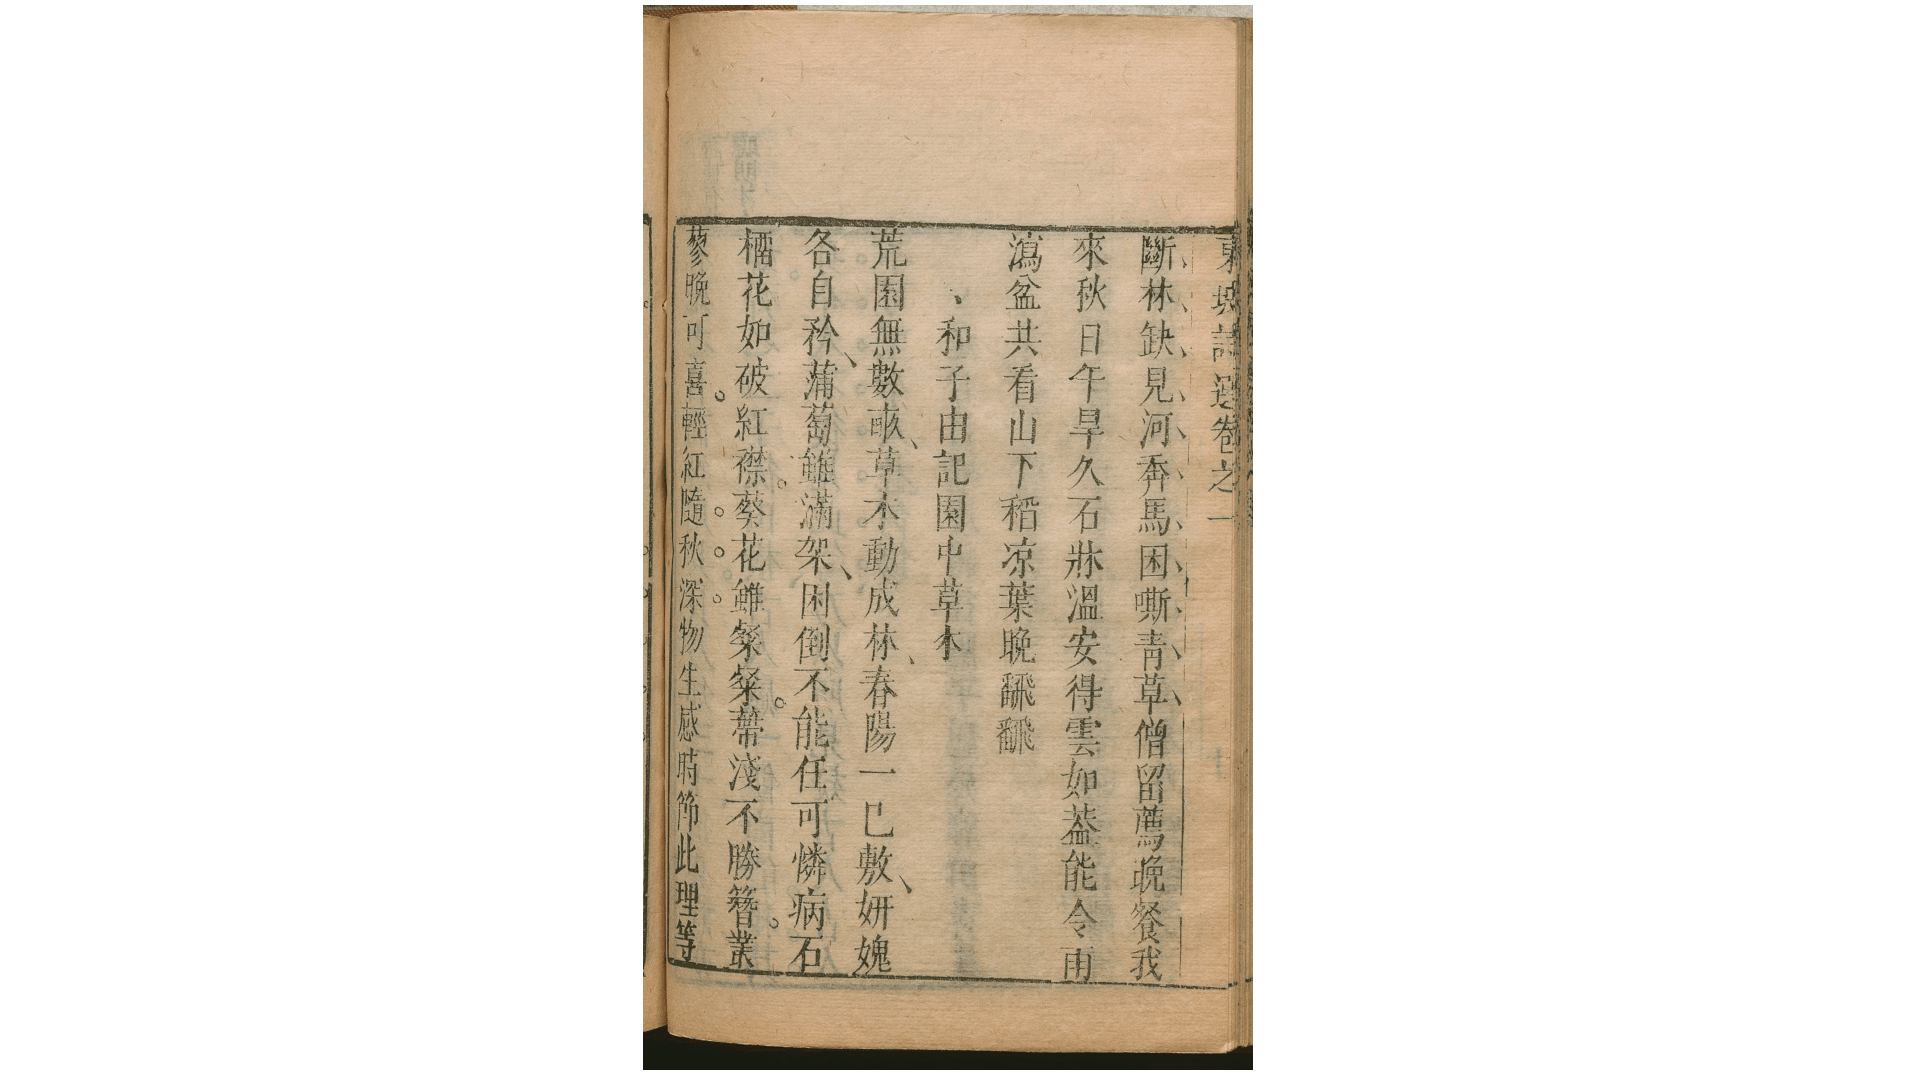 東坡詩選卷之一
斷林缺見河奔馬困嘶青草僧留薦晚餐我
來秋日午旱久石牀溫安得雲如葢能令雨
瀉盆共看山下稻凉葉晚飜飜
和子由記園中草木
荒園無數畝草木動成林春陽一已敷妍媸
各自矜蒲萄雖滿架困倒不能任可憐病石
榴花如破紅襟葵花雖粲粲蒂淺不勝簪叢
蓼晚可喜輕紅隨秋深物生感時節此理等